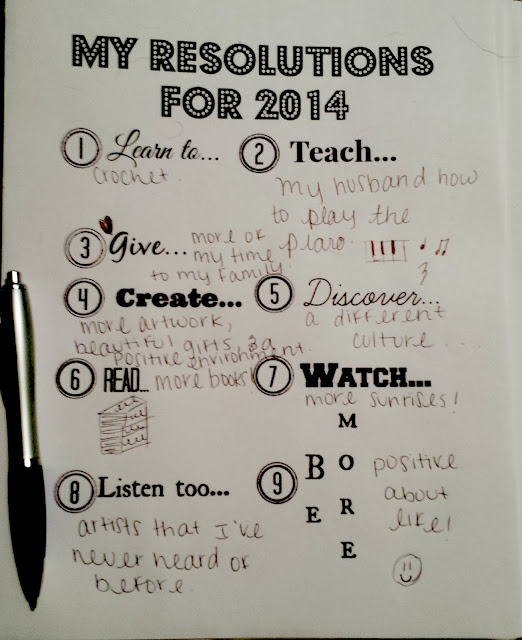 MY RESOLUTIONS
FOR 2014
1 Learn to...
crochet.
2 Teach...
my husband how
to play the
piano.
3 Give... more of
my time
to my family.
4 Create...
more artwork,
beautiful gifts, & a
positive environment.
5 Discover...
a different
culture....
6 READ... more books!
7 WATCH...
more sunrises!
8 Listen too...
artists that I've
never heard of
before.
9 BE MORE
positive
about
life!